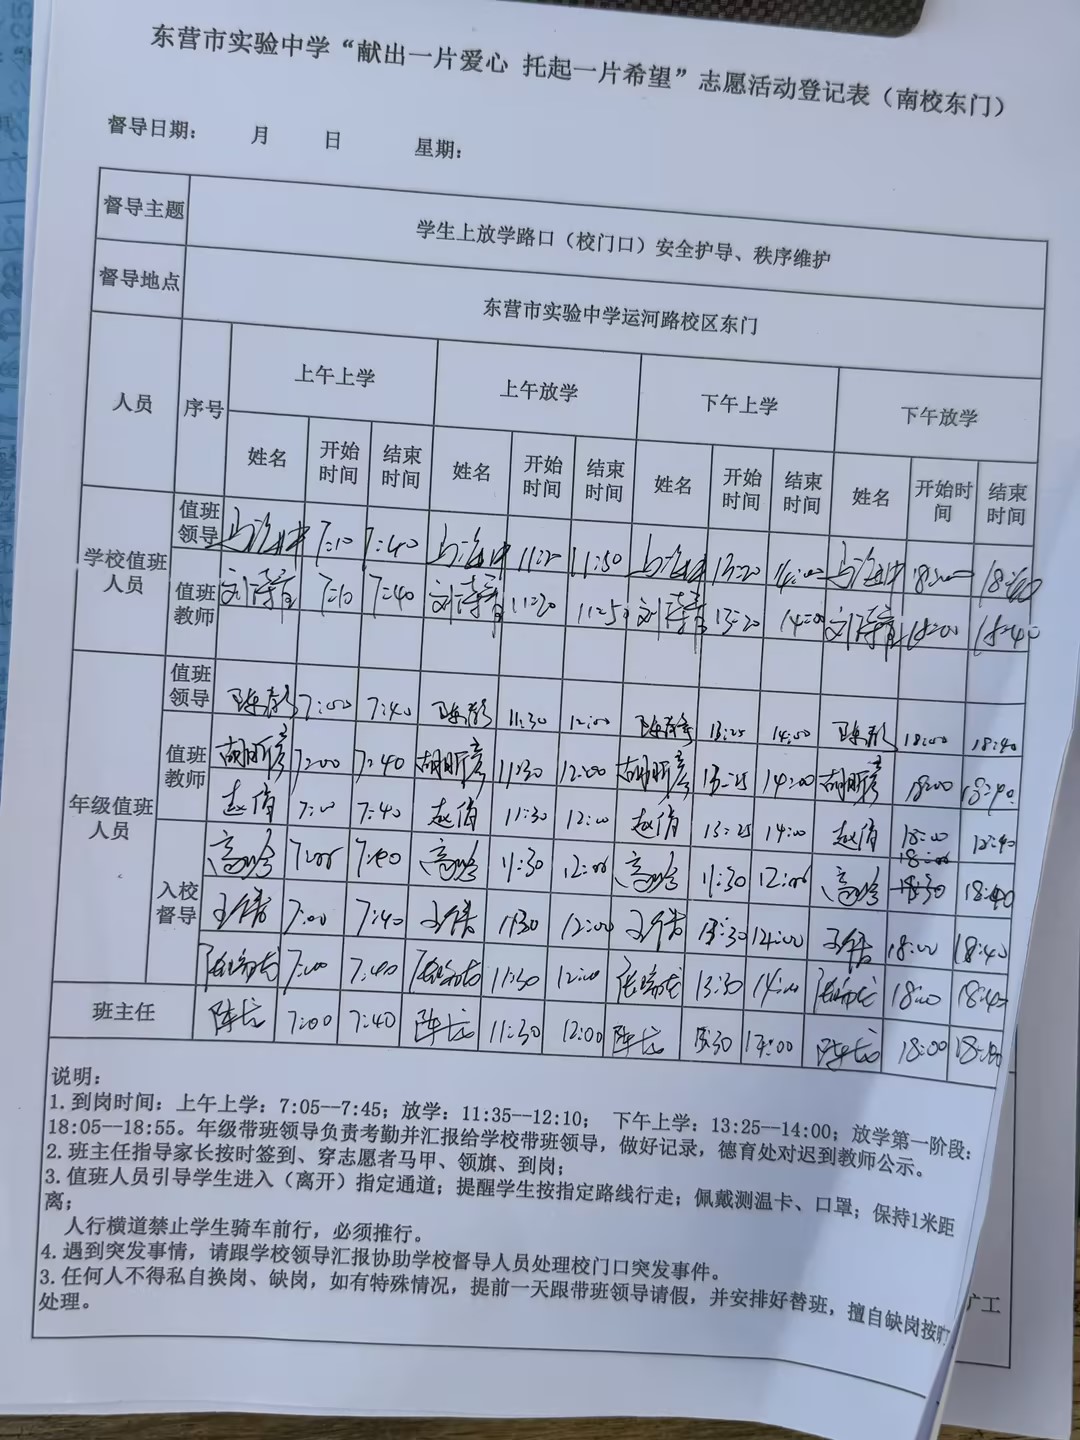 东营市实验中学“献出一片爱心 托起一片希望”志愿活动登记表（南校东门）
督导日期： 月 日 星期：
督导主题 学生上放学路口（校门口）安全护导、秩序维护
督导地点 东营市实验中学运河路校区东门
人员 序号 上午上学 上午放学 下午上学 下午放学
姓名 开始时间 结束时间 姓名 开始时间 结束时间 姓名 开始时间 结束时间 姓名 开始时间 结束时间
学校值班人员 值班领导 7:10 7:40 11:20 11:50 13:20 14:00 18:00
值班教师 7:10 7:40 11:20 11:50 13:20 14:00 18:00 18:40
年级值班人员 值班领导 7:00 7:40 11:30 12:00 13:25 14:00 18:00 18:40
值班教师 胡昕彦 7:00 7:40 胡昕彦 11:30 12:00 胡昕彦 13:25 14:00 胡昕彦 18:00 18:40
赵倩 7:00 7:40 赵倩 11:30 12:00 赵倩 13:25 14:00 赵倩 18:00 12:40
入校督导 7:00 7:40 11:30 12:00 11:30 12:00 18:00 18:40
7:00 7:40 11:30 12:00 13:30 14:00 18:00 18:40
7:00 7:40 11:30 12:00 13:30 14:00 18:00 18:40
班主任 7:00 7:40 11:30 12:00 18:00
说明：
1.到岗时间：上午上学：7:05--7:45；放学：11:35--12:10； 下午上学：13:25--14:00；放学第一阶段：
18:05--18:55。年级带班领导负责考勤并汇报给学校带班领导，做好记录，德育处对迟到教师公示。
2.班主任指导家长按时签到、穿志愿者马甲、领旗、到岗；
3.值班人员引导学生进入（离开）指定通道；提醒学生按指定路线行走；佩戴测温卡、口罩；保持1米距
离；
人行横道禁止学生骑车前行，必须推行。
4.遇到突发事情，请跟学校领导汇报协助学校督导人员处理校门口突发事件。
3.任何人不得私自换岗、缺岗，如有特殊情况，提前一天跟带班领导请假，并安排好替班，擅自缺岗按旷
处理。
工